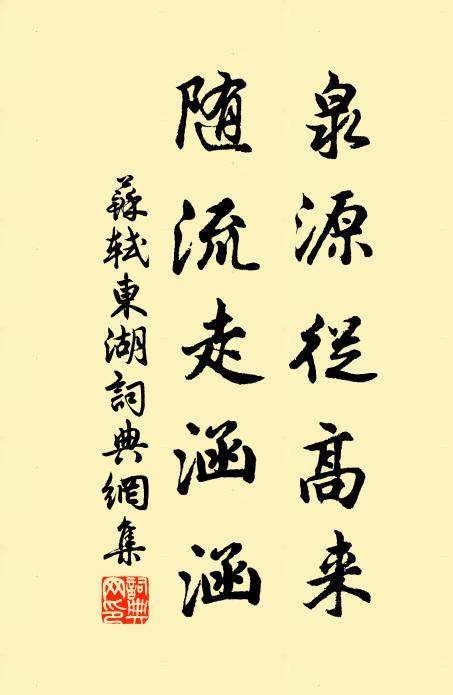 泉源從高来
随流走涵涵
蘇軾東湖詞典網集
詞典网印